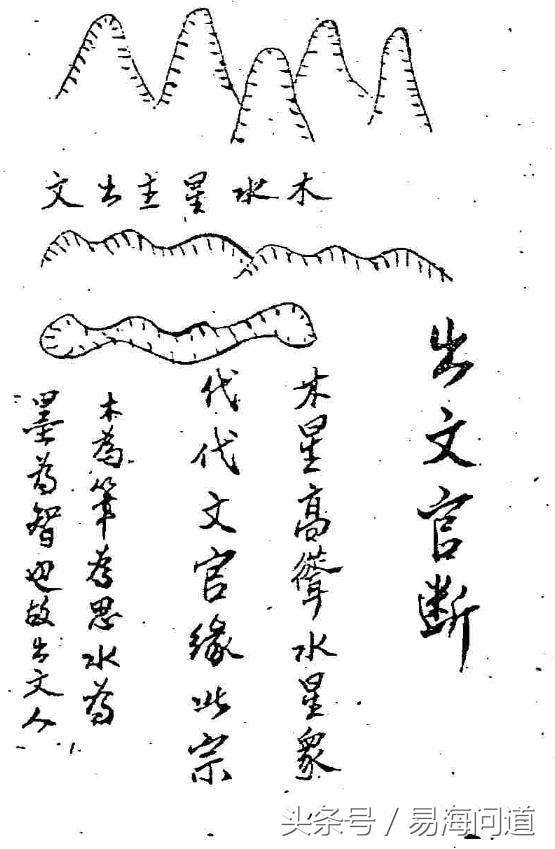 木水星主出文
出文官断
木星高聳水星衆
代代文官緣此宗
木為筆為思水為
墨為智也故出文人
头条号 / 易海问道